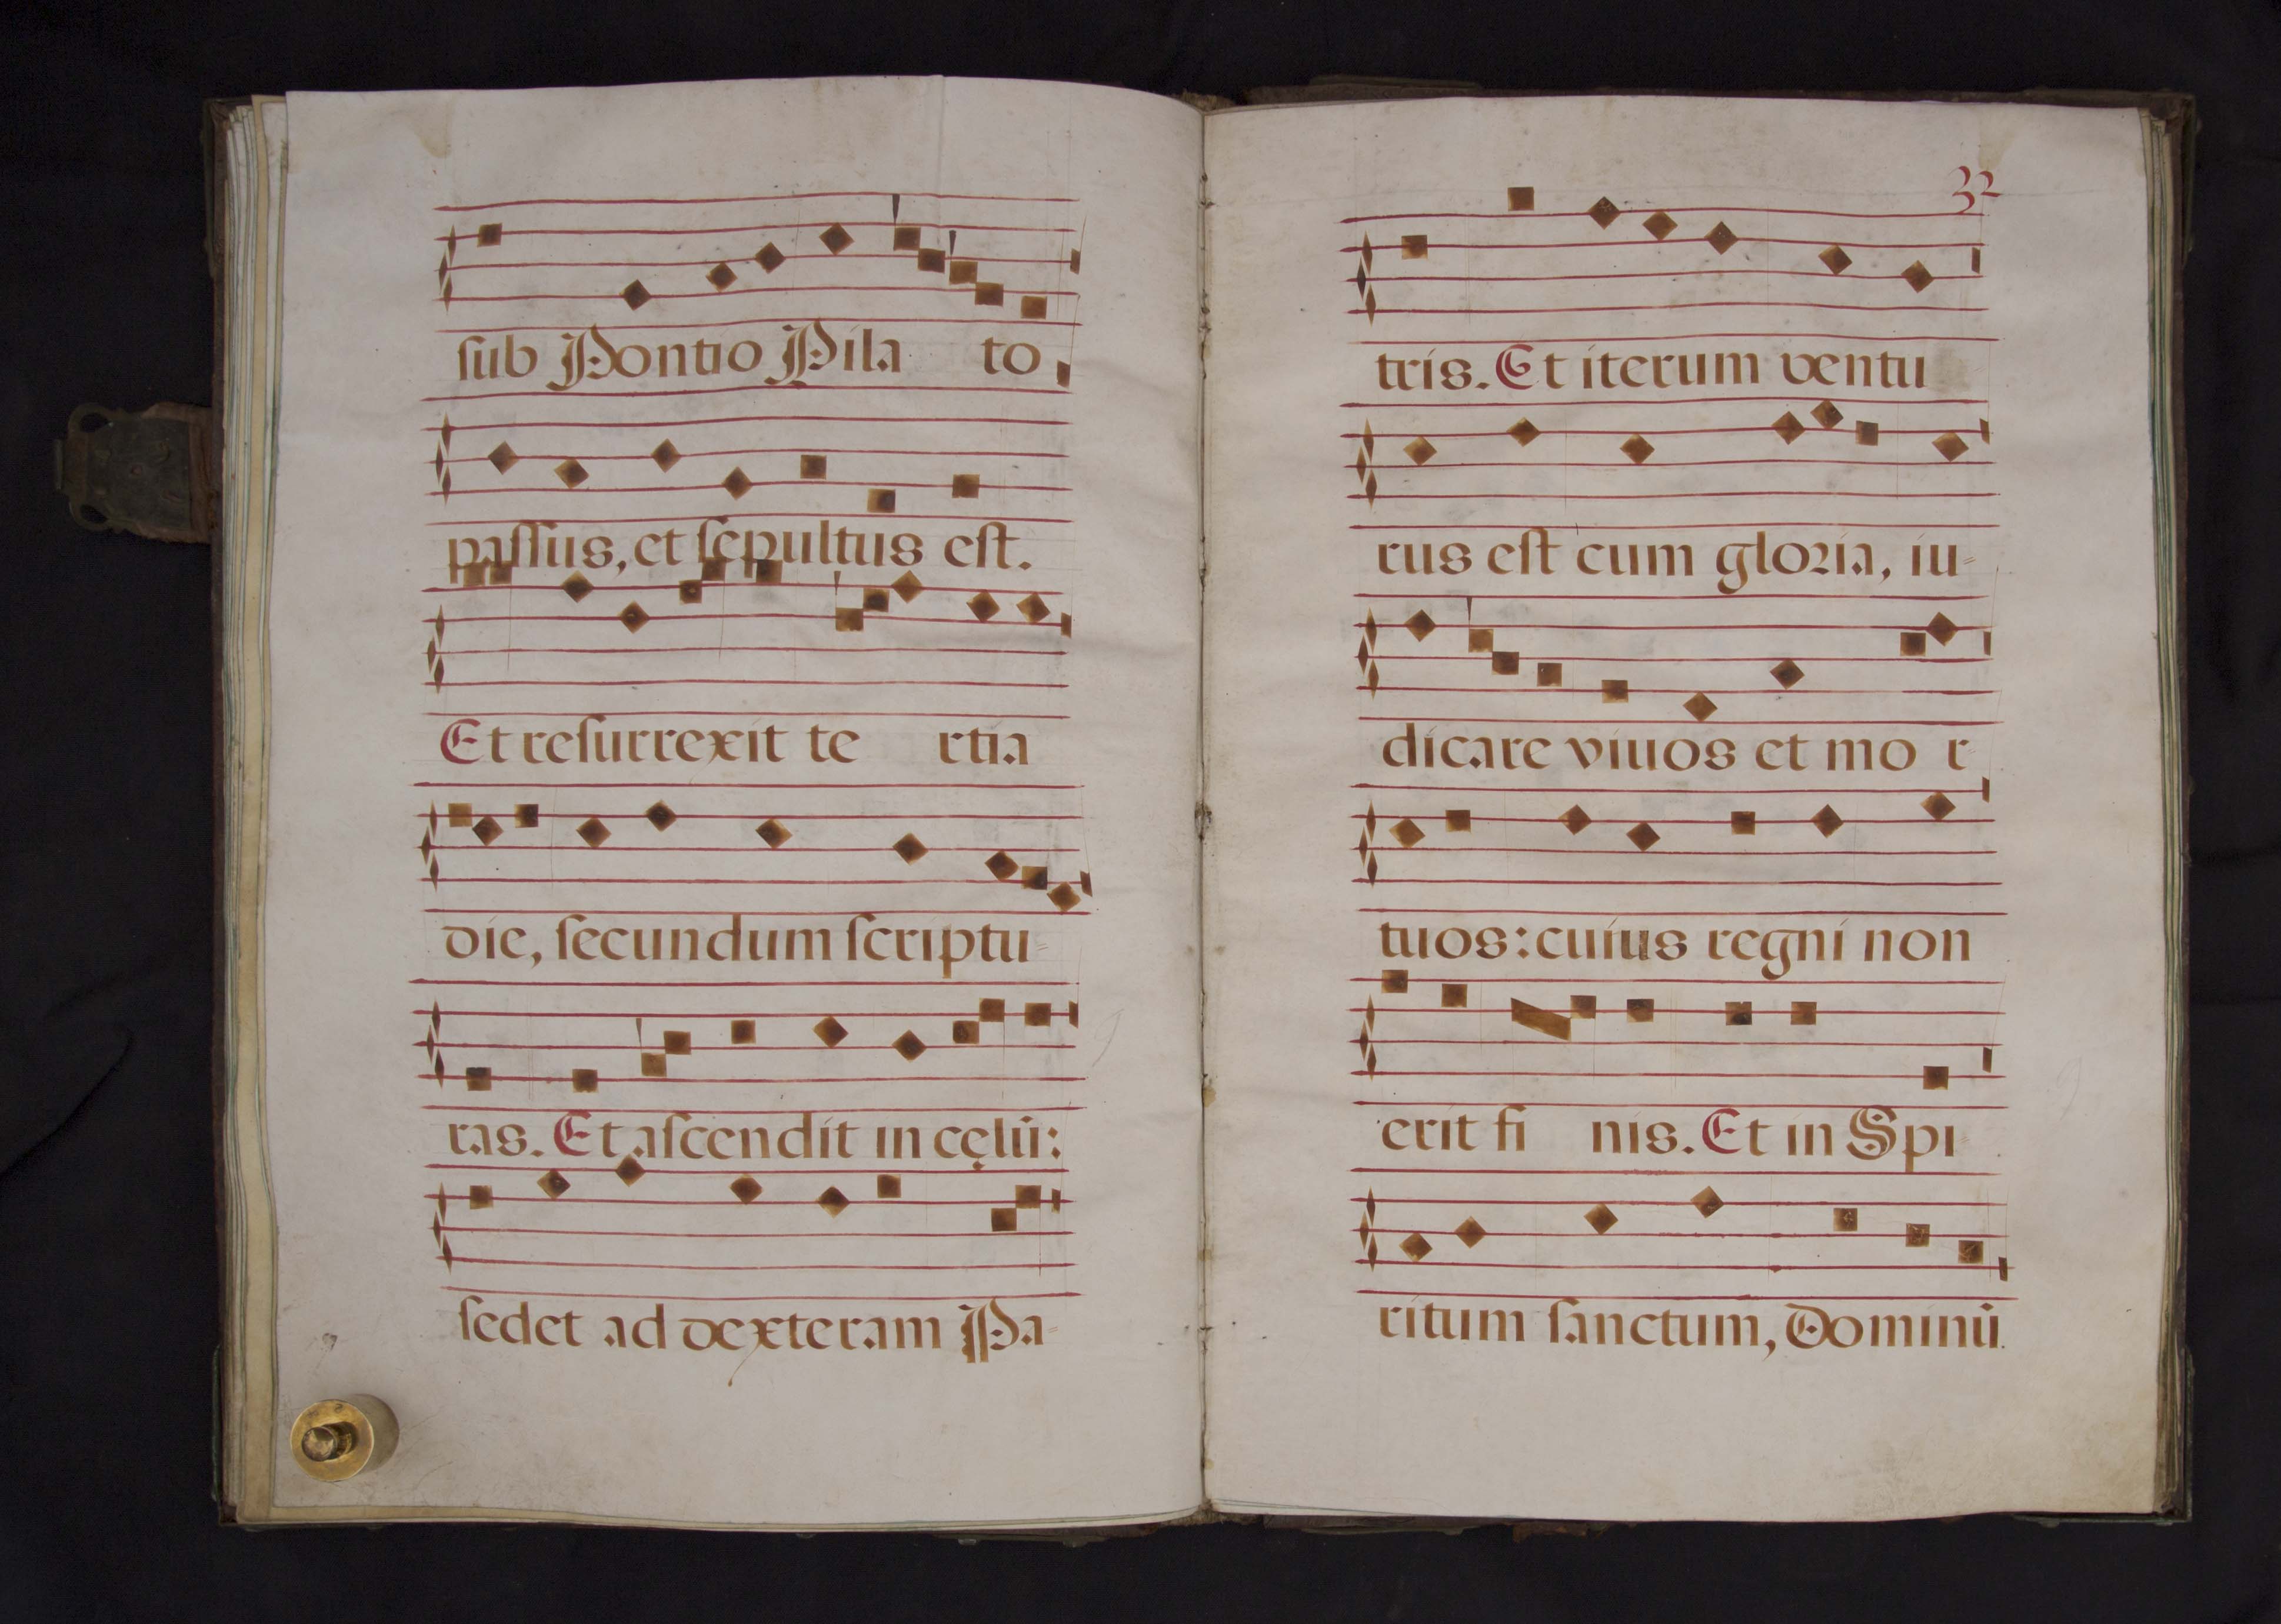 ſub Pontio Pila to
paſſus, et ſepultus eſt.
Et reſurrexit te rtia
die, ſecundum ſcriptu-
ras. Et aſcendit in cęlū:
ſedet ad dexteram Pa-
32
tris. Et iterum ventu
rus eſt cum gloꝛia, iu-
dicare viuos et mo r
tuos: cuius regni non
erit fi nis. Et in Spi-
ritum ſanctum, Dominū.